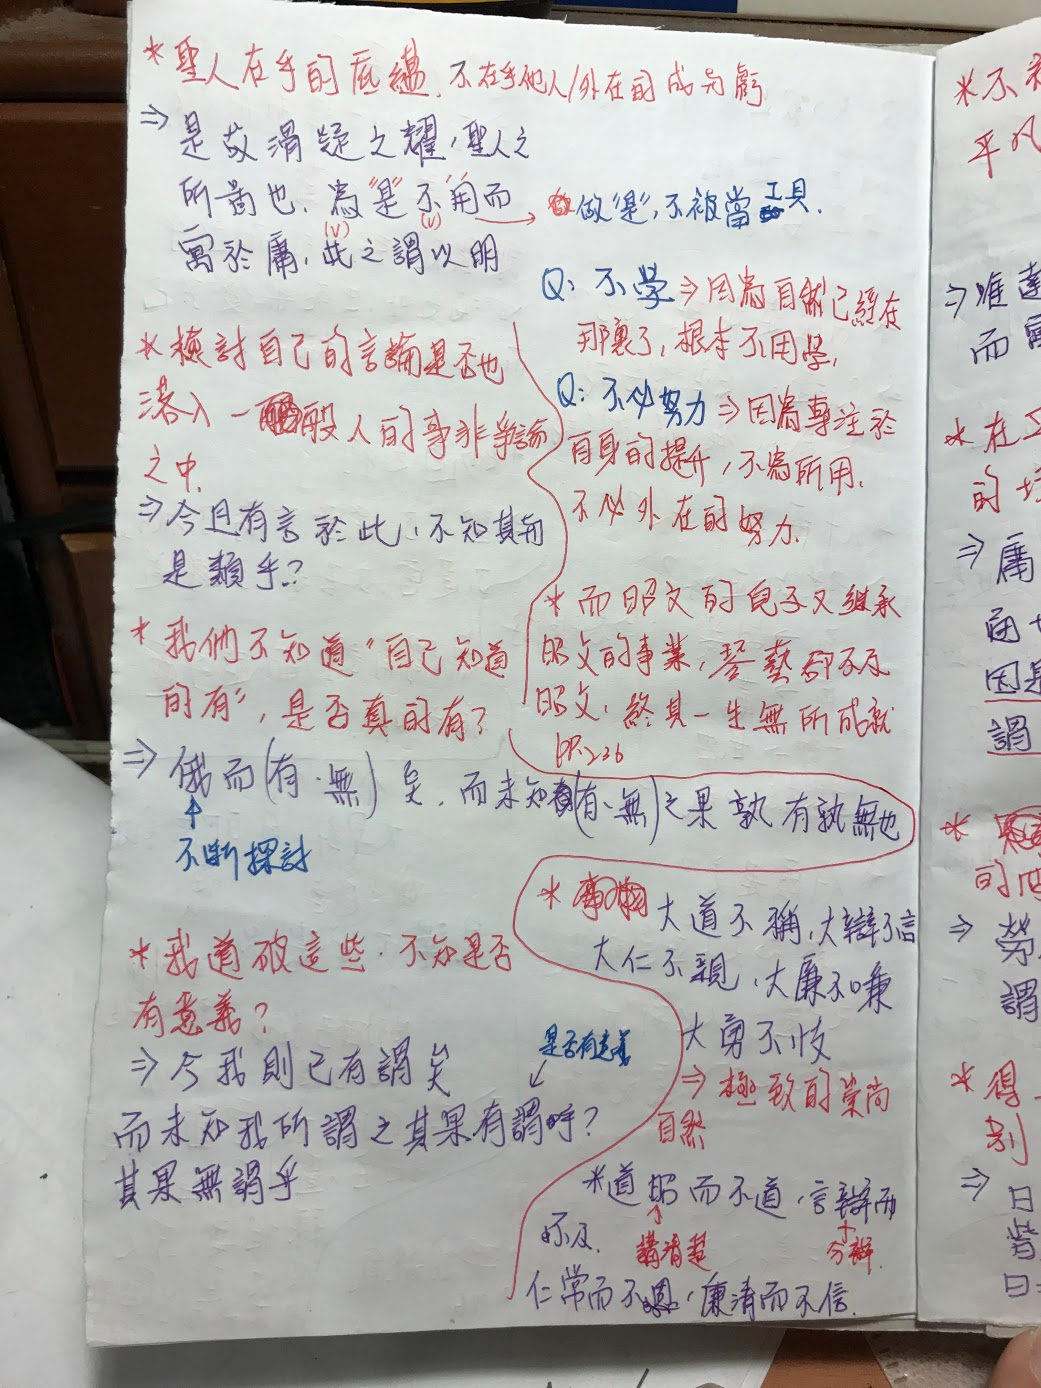 *聖人在乎的底蘊,不在乎他人/外在的成与虧
⇒是故滑疑之耀,聖人之
所啚也,為"是"不"用"而
(V) (V)
寓於庸,此之謂以明
→做"是",不被當工具.
*檢討自己的言論是否也
落入一般人的事非爭論
之中.
⇒今且有言於此,不知其與
是類乎?
*我們不知道"自己知道
的有",是否真的有?
⇒俄而(有·無)矣,而未知(有·無)之果孰有孰無也
↑
不断探討
*我道破這些,不知是否
有意義?
⇒今我則已有謂矣
是否有意義
而未知我所謂之其果有謂呼?
其果無謂乎
Q:不學⇒因為自然已經在
那裏了,根本不用學,
Q:不必努力⇒因為專注於
自身的提升,不為所用.
不必外在的努力.
*而昭文的兒子又継承
昭文的事業,琴藝卻不及
昭文,終其一生無所成就
PP.236
*大道不稱,大辯不言
大仁不親,大廉不嗛
大勇不忮
⇒極致的崇尚
自然
*道昭而不道,言辯而
不及.
講清楚
分辨
仁常而不周,廉清而不信.
*不
平凡
⇒唯達
而寓
*在
的
⇒庸
因是
謂
*
的
⇒勞
謂
*得
別
⇒日
皆
曰